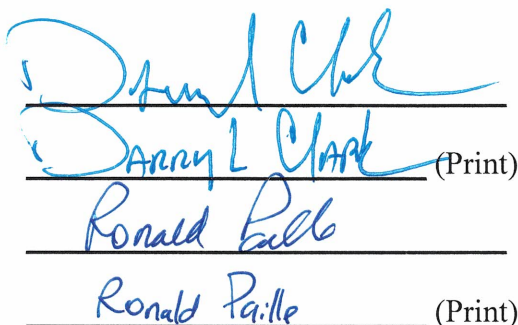 Darryl Clark
DARRYL CLARK (Print)
Ronald Paille
Ronald Paille (Print)